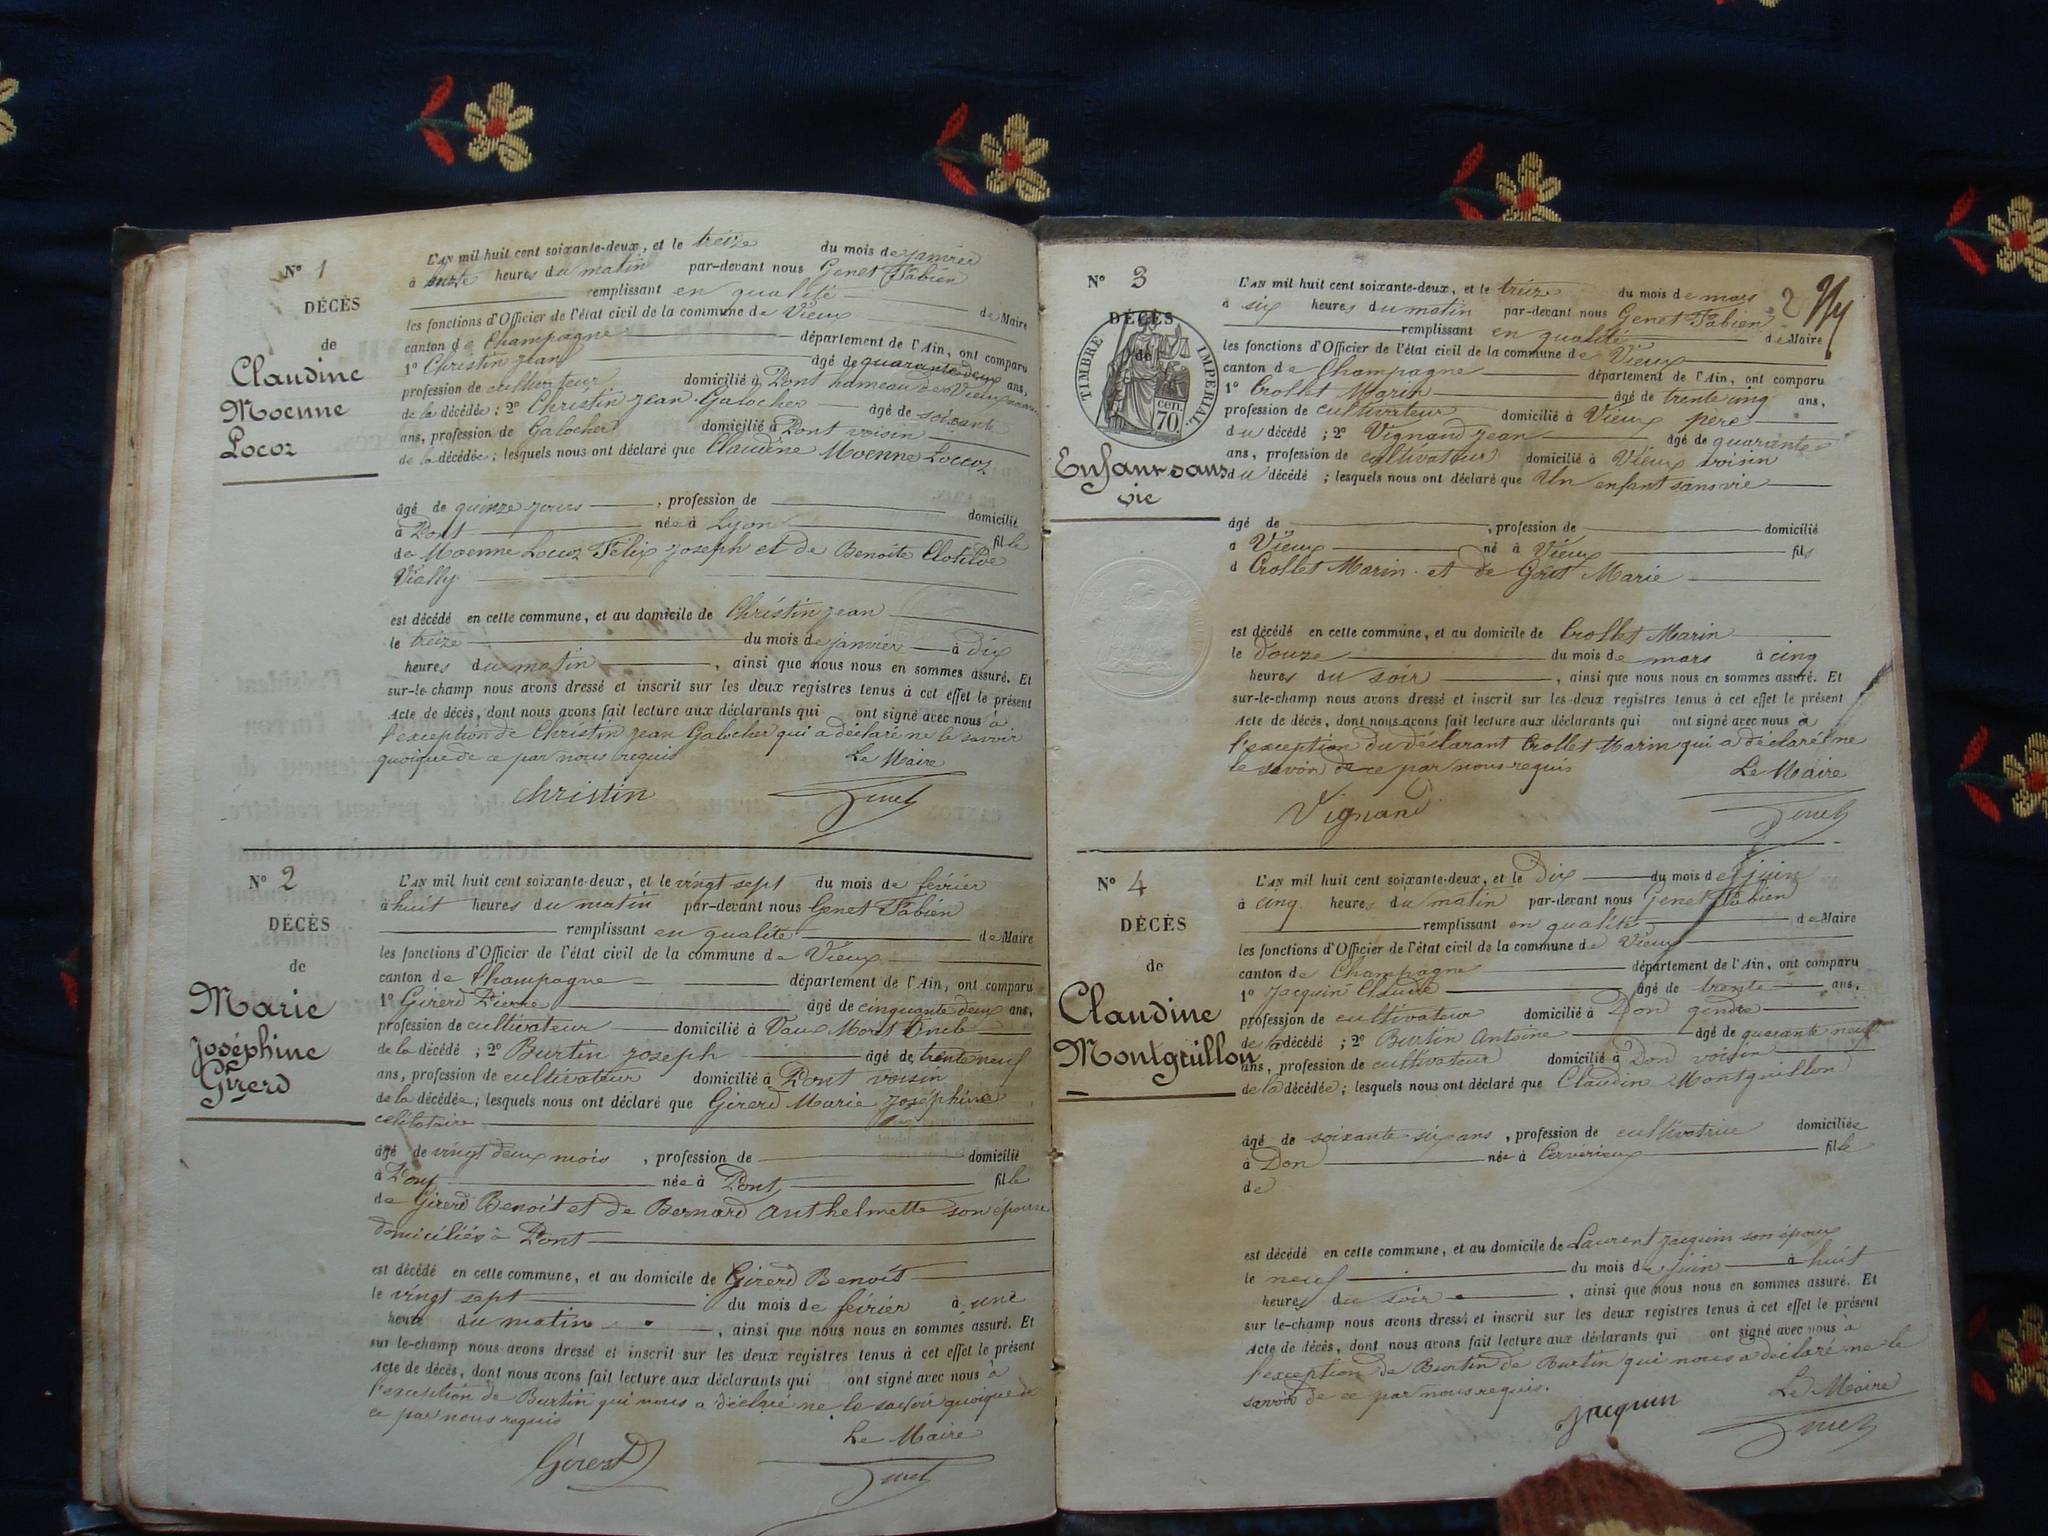 N° 1
DÉCÈS
de
Claudine
Moenne
Locoz
L'AN mil huit cent soixante-deux, et le treize du mois de janvier
à heures du matin par-devant nous Genet Fabien
remplissant en qualité de Maire
les fonctions d'Officier de l'état civil de la commune de Vieux
canton de Champagne département de l'Ain, ont comparu
1° Christin Jean âgé de quarante deux ans,
profession de cultivateur domicilié à Pont hameau de Vieux
de la décédée ; 2° Christin Jean Galocher âgé de soixante
ans, profession de Galocher domicilié à Pont voisin
de la décédée ; lesquels nous ont déclaré que Claudine Moenne Loccoz
âgé de quinze jours , profession de domicilié
à Pont née à Lyon fille
de Moenne Locoz Felix Joseph et de Benoite Clotilde
Vially
est décédé en cette commune, et au domicile de Christin Jean
le treize du mois de janvier à dix
heures du matin , ainsi que nous nous en sommes assuré. Et
sur-le-champ nous avons dressé et inscrit sur les deux registres tenus à cet effet le présent
Acte de décès, dont nous avons fait lecture aux déclarants qui ont signé avec nous à
l'exception de Christin Jean Galocher qui a déclaré ne le savoir
quoique de ce par nous requis Le Maire
christin Genet
N° 2
DÉCÈS
de
Marie
Joséphine
Girerd
L'AN mil huit cent soixante-deux, et le vingt sept du mois de février
à huit heures du matin par-devant nous Genet Fabien
remplissant en qualité de Maire
les fonctions d'Officier de l'état civil de la commune de Vieux
canton de Champagne département de l'Ain, ont comparu
1° Girerd Pierre âgé de cinquante deux ans,
profession de cultivateur domicilié à Vaux Morets Oncle
de la décédé ; 2° Burtin Joseph âgé de trente neuf
ans, profession de cultivateur domicilié à Pont voisin
de la décédée ; lesquels nous ont déclaré que Girerd Marie Joséphine
celibataire
âgé de vingt deux mois , profession de domicilié
à Pont née à Pont fille
de Girerd Benoit et de Bernard Anthelmette son épouse
domiciliés à Pont
est décédé en cette commune, et au domicile de Girerd Benoit
le vingt sept du mois de février à une
heure du matin , ainsi que nous nous en sommes assuré. Et
sur le-champ nous avons dressé et inscrit sur les deux registres tenus à cet effet le présent
Acte de décès, dont nous avons fait lecture aux déclarants qui ont signé avec nous à
l'exception de Burtin qui nous a déclaré ne le savoir quoique de
ce par nous requis
Le Maire
Girerd Genet
N° 3
DÉCÈS
de
TIMBRE IMPERIAL
70 cen.
Enfant sans
vie
2
L'AN mil huit cent soixante-deux, et le treize du mois de mars
à six heures du matin par-devant nous Genet Fabien
remplissant en qualité de Maire
les fonctions d'Officier de l'état civil de la commune de Vieux
canton de Champagne département de l'Ain, ont comparu
1° Crollet Marin âgé de trente cinq ans,
profession de cultivateur domicilié à Vieux père
du décédé ; 2° Vignand Jean âgé de quarante
ans, profession de cultivateur domicilié à Vieux voisin
du décédé ; lesquels nous ont déclaré que Un enfant sans vie
âgé de , profession de domicilié
à Vieux né à Vieux fils
d Crollet Marin et de Gout Marie
est décédé en cette commune, et au domicile de Crollet Marin
le douze du mois de mars à cinq
heures du soir , ainsi que nous nous en sommes assuré. Et
sur-le-champ nous avons dressé et inscrit sur les deux registres tenus à cet effet le présent
Acte de décès, dont nous avons fait lecture aux déclarants qui ont signé avec nous à
l'exception du déclarant Crollet Marin qui a déclaré ne
le savoir de ce par nous requis Le Maire
Vignand Genet
N° 4
DÉCÈS
de
Claudine
Montguillon
L'AN mil huit cent soixante-deux, et le dix du mois de juin
à cinq heures du matin par-devant nous Genet Fabien
remplissant en qualité de Maire
les fonctions d'Officier de l'état civil de la commune de Vieux
canton de Champagne département de l'Ain, ont comparu
1° Jacquin Claude âgé de trente ans,
profession de cultivateur domicilié à Don gendre
de la décédée ; 2° Burtin Antoine âgé de quarante neuf
ans, profession de cultivateur domicilié à Don voisin
de la décédée ; lesquels nous ont déclaré que Claudin Montguillon
âgé de soixante six ans , profession de cultivatrice domiciliée
à Don née à Cerverieux fille
de
est décédé en cette commune, et au domicile de Laurent Jacquin son époux
le neuf du mois de juin à huit
heures du soir , ainsi que nous nous en sommes assuré. Et
sur le-champ nous avons dressé et inscrit sur les deux registres tenus à cet effet le présent
Acte de décès, dont nous avons fait lecture aux déclarants qui ont signé avec nous à
l'exception de Burtin de Burtin qui nous a déclaré ne le
savoir de ce par nous requis. Le Maire
Jacquin Genet